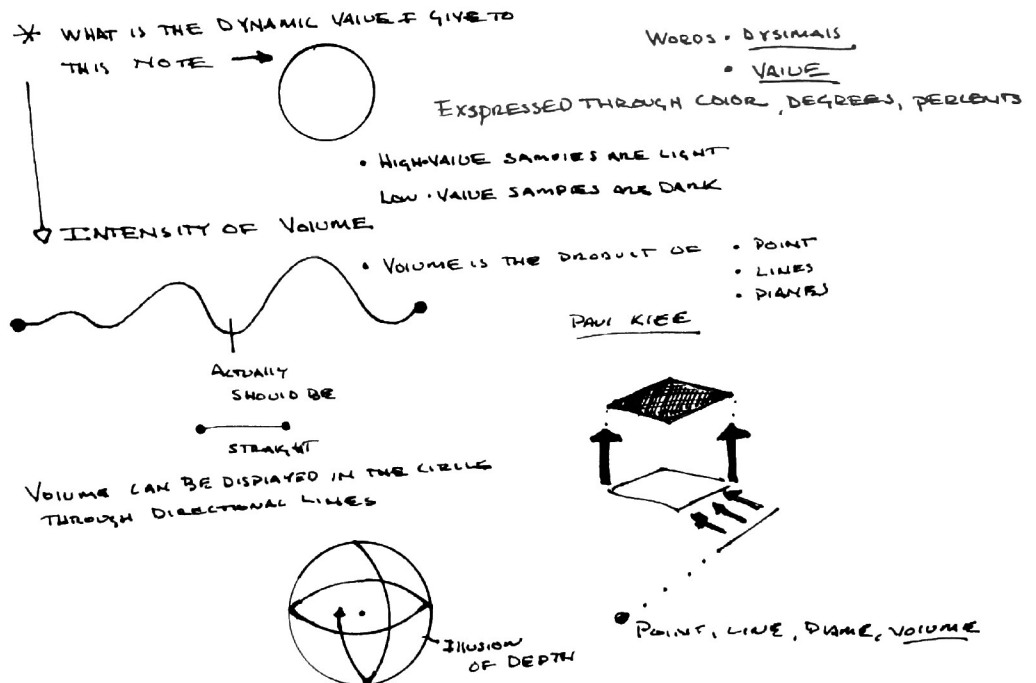 * WHAT IS THE DYNAMIC VALUE I GIVE TO
THIS NOTE →
WORDS • DYSIMALS
• VALUE
EXSPRESSED THROUGH COLOR, DEGREES, PERCENTS
• HIGH-VALUE SAMPLES ARE LIGHT
LOW-VALUE SAMPLES ARE DARK
INTENSITY OF VOLUME
• VOLUME IS THE PRODUCT OF • POINT
• LINES
• PLANES
PAUL KLEE
ACTUALLY
SHOULD BE
STRAIGHT
VOLUME CAN BE DISPLAYED IN THE CIRCLE
THROUGH DIRECTIONAL LINES
ILLUSION
OF DEPTH
POINT, LINE, PLANE, VOLUME